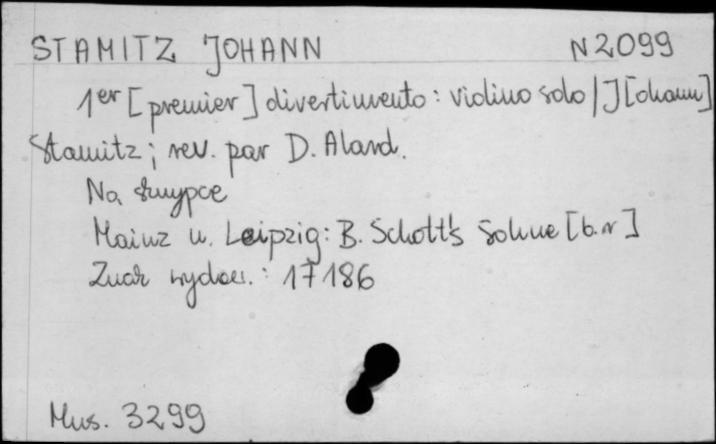 STAMITZ JOHANN N2099
1er [premier] divertimento: violino solo / J[ohann]
Stamitz; rev. par D. Alard.
Na skrzypce
Mainz u. Leipzig: B. Schott's Sohne [b.r]
Znak wydaw.: 17186
Mus. 3299